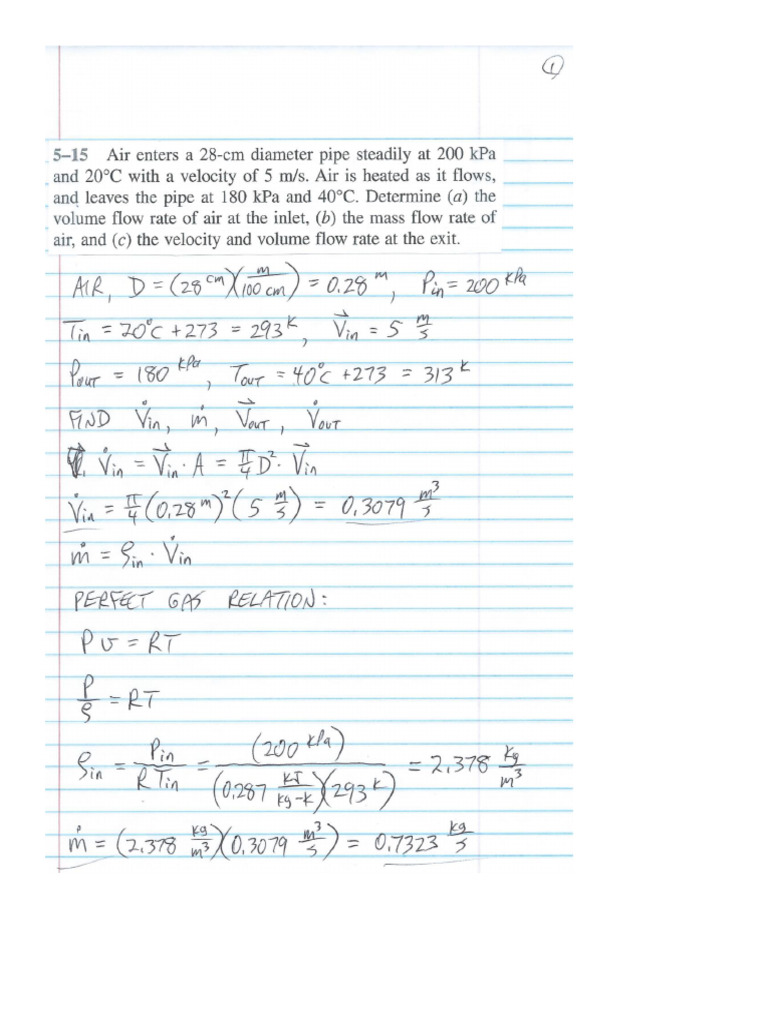 ①
5–15 Air enters a 28-cm diameter pipe steadily at 200 kPa
and 20°C with a velocity of 5 m/s. Air is heated as it flows,
and leaves the pipe at 180 kPa and 40°C. Determine (a) the
volume flow rate of air at the inlet, (b) the mass flow rate of
air, and (c) the velocity and volume flow rate at the exit.
AIR, D = (28 cm)(m/100 cm) = 0.28 m, Pin = 200 kPa
Tin = 20°C + 273 = 293 K, V⃗in = 5 m/s
Pout = 180 kPa, TOUT = 40°C + 273 = 313 K
FIND V̇in, ṁ, V⃗OUT, V̇OUT
V̇in = V⃗in · A = π/4 D² · V⃗in
V̇in = π/4 (0.28 m)² (5 m/s) = 0.3079 m³/s
ṁ = ρin · V̇in
PERFECT GAS RELATION:
Pv = RT
P/ρ = RT
ρin = Pin/(R Tin) = (200 kPa)/((0.287 kJ/kg-K)(293 K)) = 2.378 kg/m³
ṁ = (2.378 kg/m³)(0.3079 m³/s) = 0.7323 kg/s